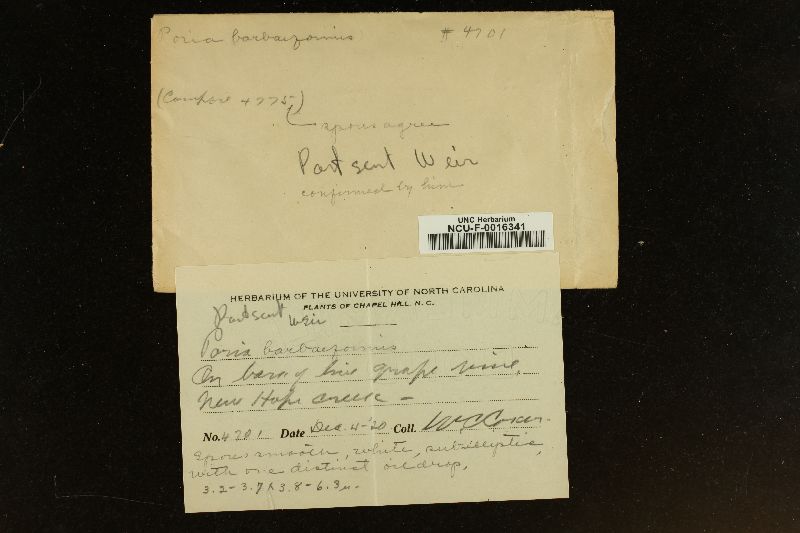 Poria barbaeformis # 4701
(Compare 4775)
spores agree
Part sent Weir
confirmed by him
UNC Herbarium
NCU-F-0016341
HERBARIUM OF THE UNIVERSITY OF NORTH CAROLINA
PLANTS OF CHAPEL HILL, N. C.
Part sent
Weir
Poria barbaeformis
On base of live grape vine,
New Hope creek -
No. 4701 Date Dec. 4-'20 Coll. W C Coker
Spores smooth, white, subelliptic,
with one distinct oil drop,
3.2-3.7 x 3.8-6.3µ.